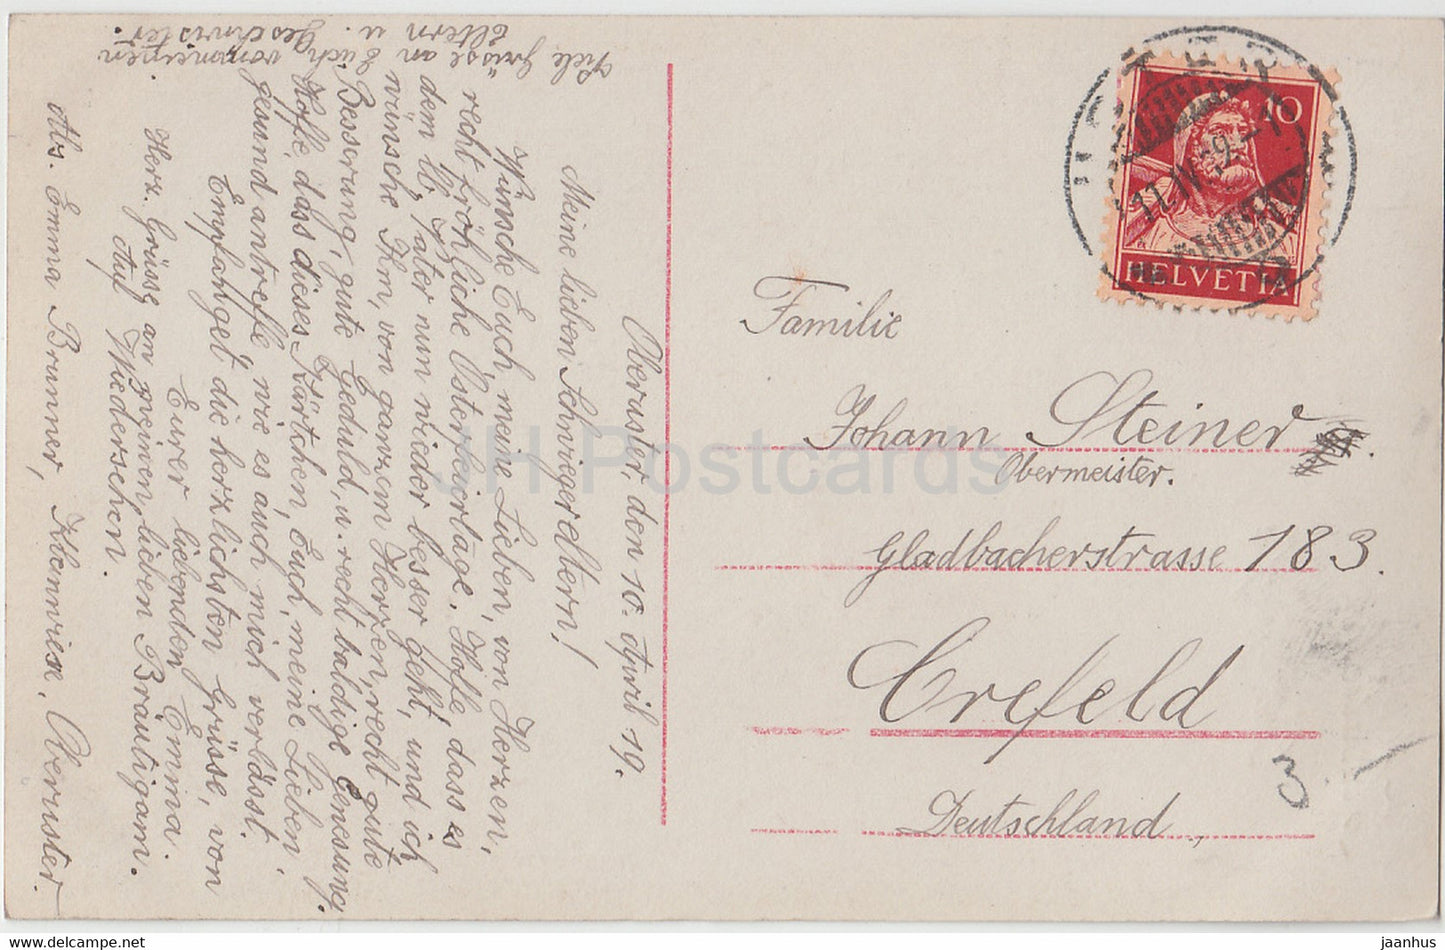 Oberuster, den 10. April 19.
Meine lieben Schwiegereltern!
Wünsche Euch, meine Lieben, von Herzen,
recht fröhliche Osterfeiertage. Hoffe, dass es
dem lb. Vater nun wieder besser geht, und ich
wünsche Ihm, von ganzem Herzen, recht gute
Besserung, gute Geduld, u. recht baldige Genesung.
Hoffe, dass dieses Kärtchen, Euch, meine Lieben
gesund antreffe, wie es auch mich verlässt.
Empfanget die herzlichsten Grüsse, von
Eurer liebenden Emma.
Herz. Grüsse an meinen lieben Bräutigam.
Auf Wiedersehen.
Abs. Emma Brunner, Oberuster.
Viele Grüsse an Euch von meinen
Eltern u. Geschwister.
10
HELVETIA
USTER
11.IV.19
Familie
Johann Steiner
Obermeister.
Gladbacherstrasse 183.
Crefeld
Deutschland
3
JH Postcards
www.delcampe.net
jaanhus